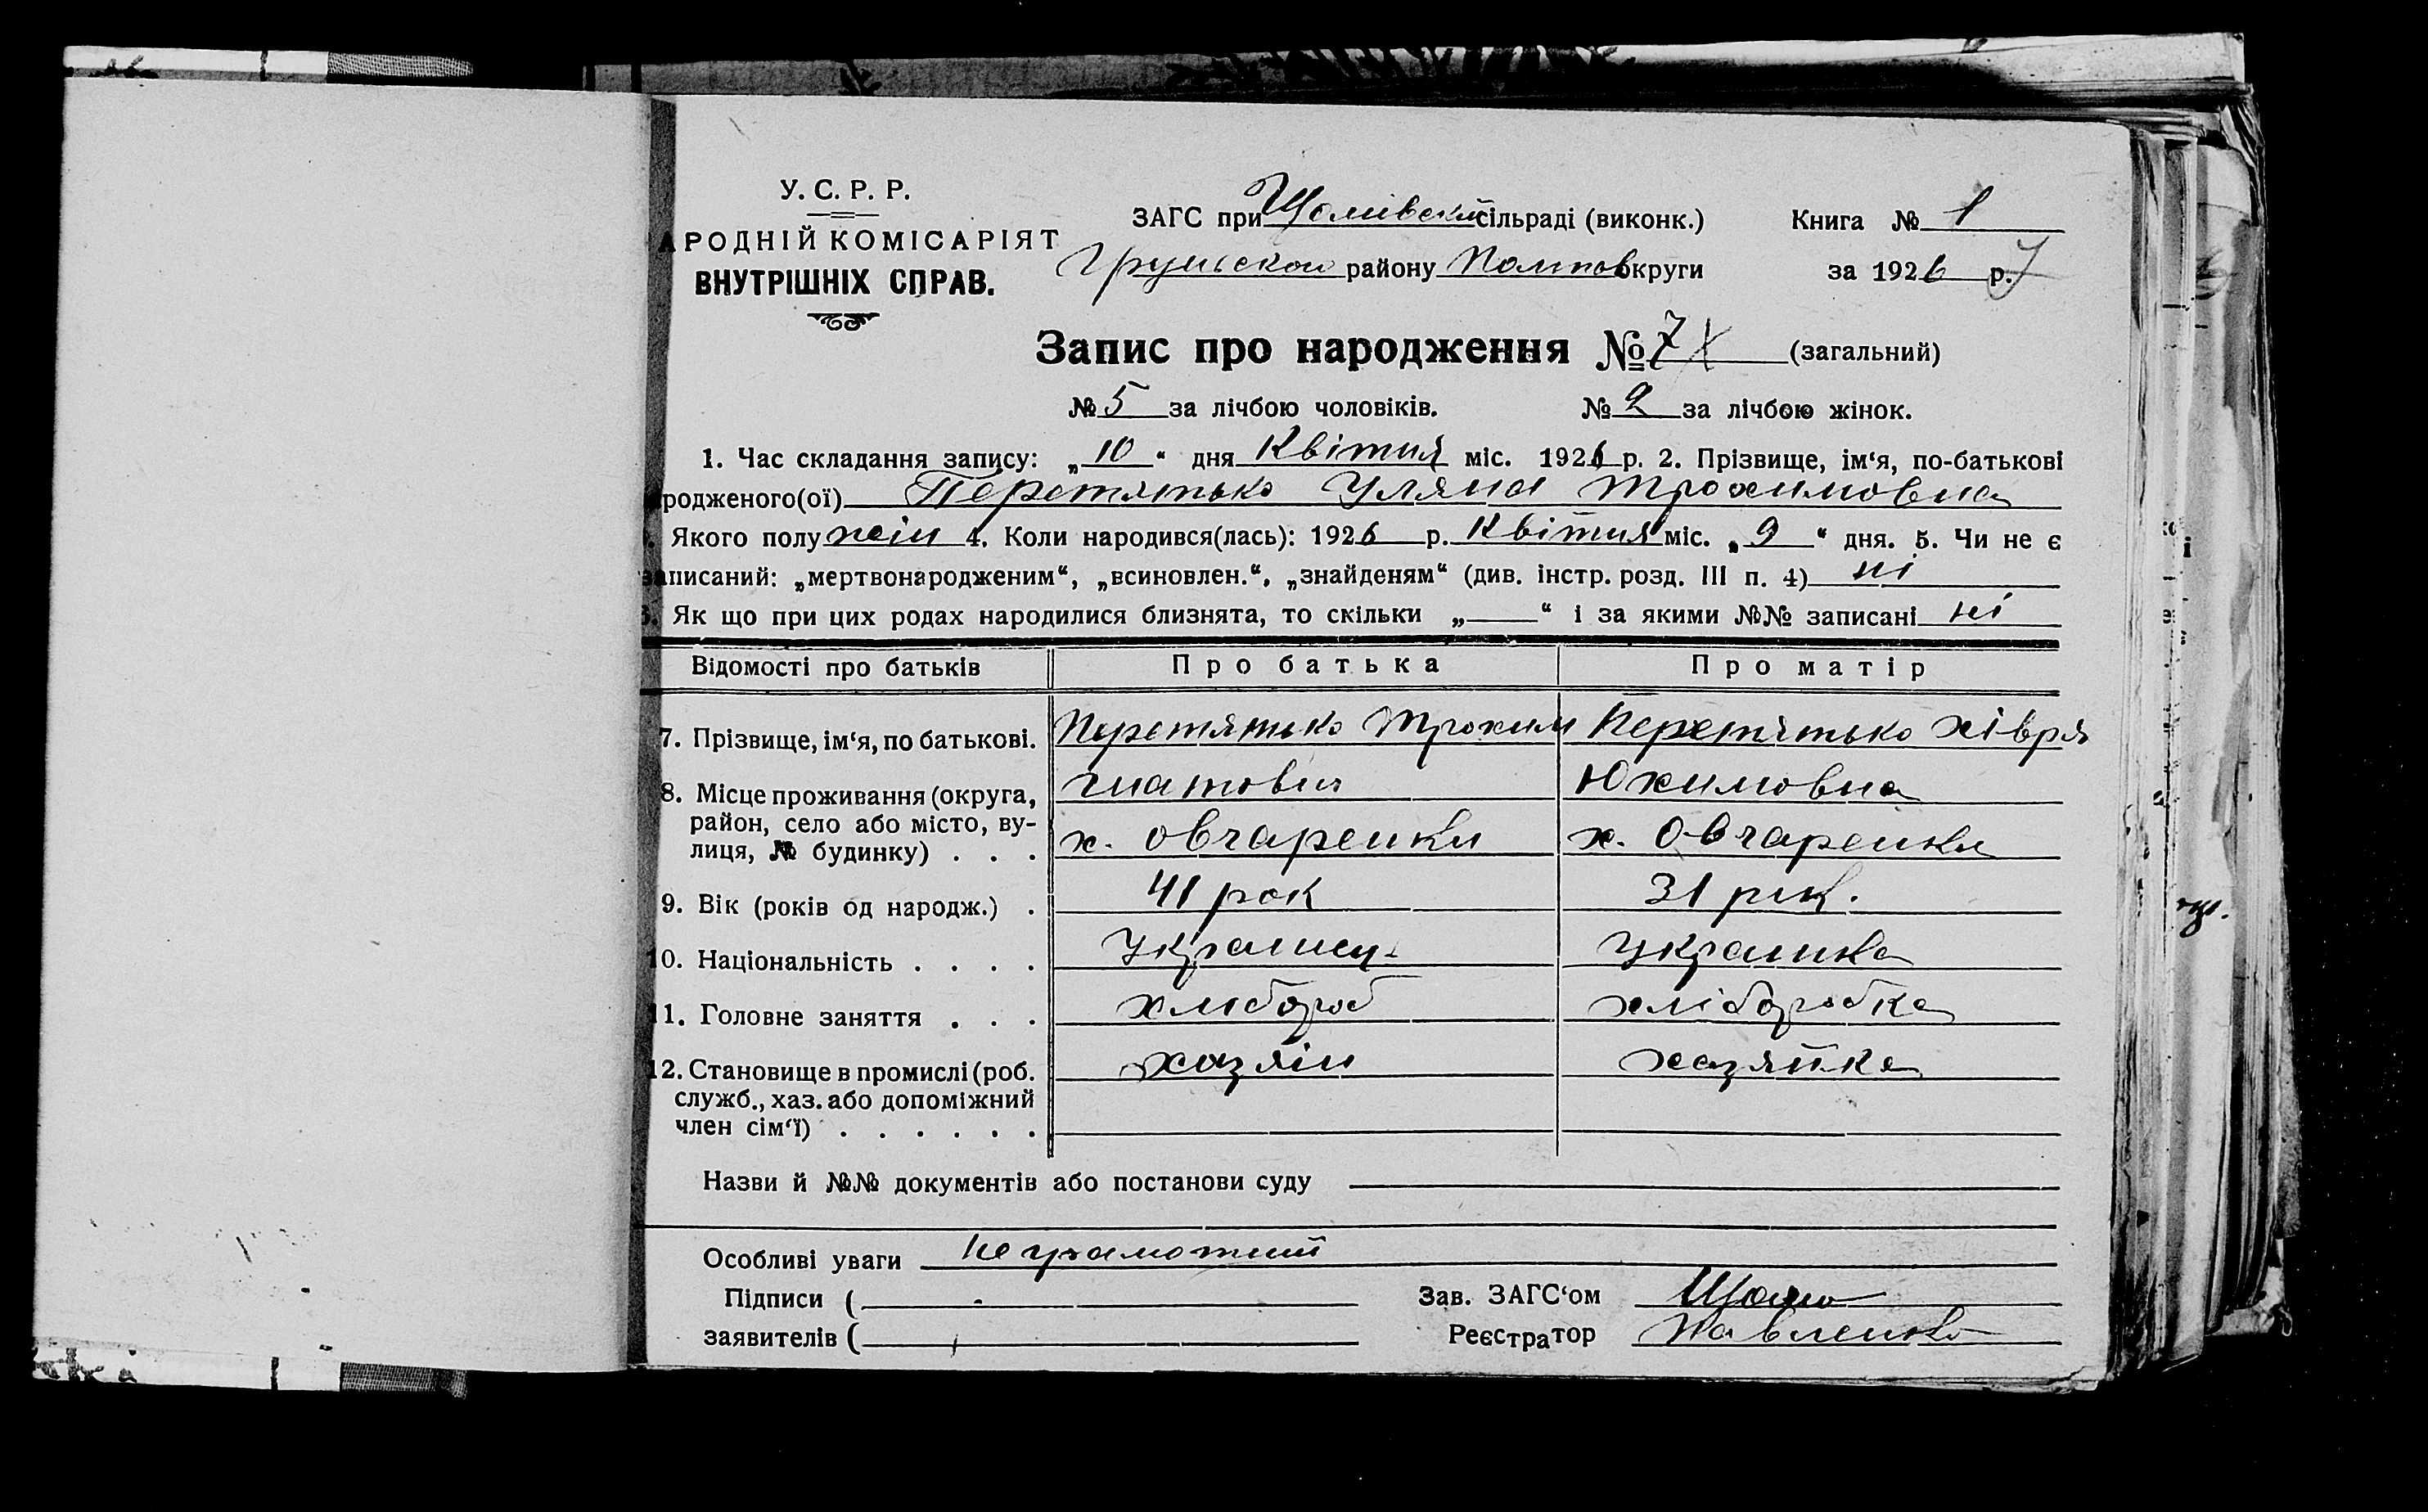 У. С. Р. Р.
АРОДНІЙ КОМІСАРІЯТ
ВНУТРІШНІХ СПРАВ.
ЗАГС при сільраді (виконк.) Книга № 1
району округи за 1926 р.
Запис про народження № 7 (загальний)
№ 5 за лічбою чоловіків. № 2 за лічбою жінок.
1. Час складання запису: „10“ дня Квітня міс. 1926 р. 2. Прізвище, ім‘я, по-батькові
родженого(ої) Перетятько Уляна Трохимовна
Якого полу жін 4. Коли народився(лась): 1926 р. Квітня міс. „9“ дня. 5. Чи не є
записаний: „мертвонародженим“, „всиновлен.“, „знайденям“ (див. інстр. розд. III п. 4) ні
6. Як що при цих родах народилися близнята, то скільки „ “ і за якими №№ записані ні
Відомості про батьків Про батька Про матір
7. Прізвище, ім‘я, по батькові. Перетятько Трохим Перетятько Хівря
гнатович Юхимовна
8. Місце проживання (округа,
район, село або місто, ву-
лиця, № будинку) . . . х. Овчаренки х. Овчаренки
9. Вік (років од народж.) . 41 рок 31 рік.
10. Національність . . . . Українец. Українка
11. Головне заняття . . . хлібороб хліборобка
12. Становище в промислі (роб. хазяін хазяйка
служб., хаз. або допоміжний
член сім‘ї) . . . . . .
Назви й №№ документів або постанови суду
Особливі уваги неграмотний
Підписи ( Зав. ЗАГС‘ом
заявителів ( Реєстратор Павленко